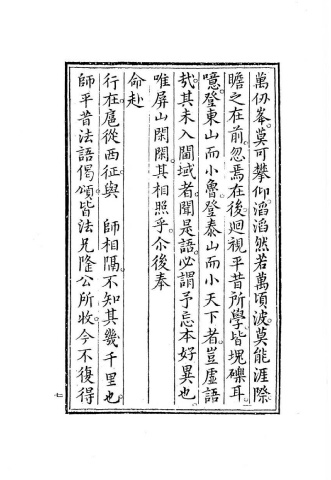 萬仞峯莫可攀仰滔滔然若萬頃波莫能涯際
瞻之在前忽焉在後迴視平昔所學皆塊礫耳
噫登東山而小魯登泰山而小天下者豈虛語
哉其未入閫域者聞是語必謂予忘本好異也
唯屏山閑閑其相照乎尒後奉
命赴
行在扈從西征與　師相隔不知其幾千里也
師平昔法語偈頌皆法兄隆公所收今不復得
七